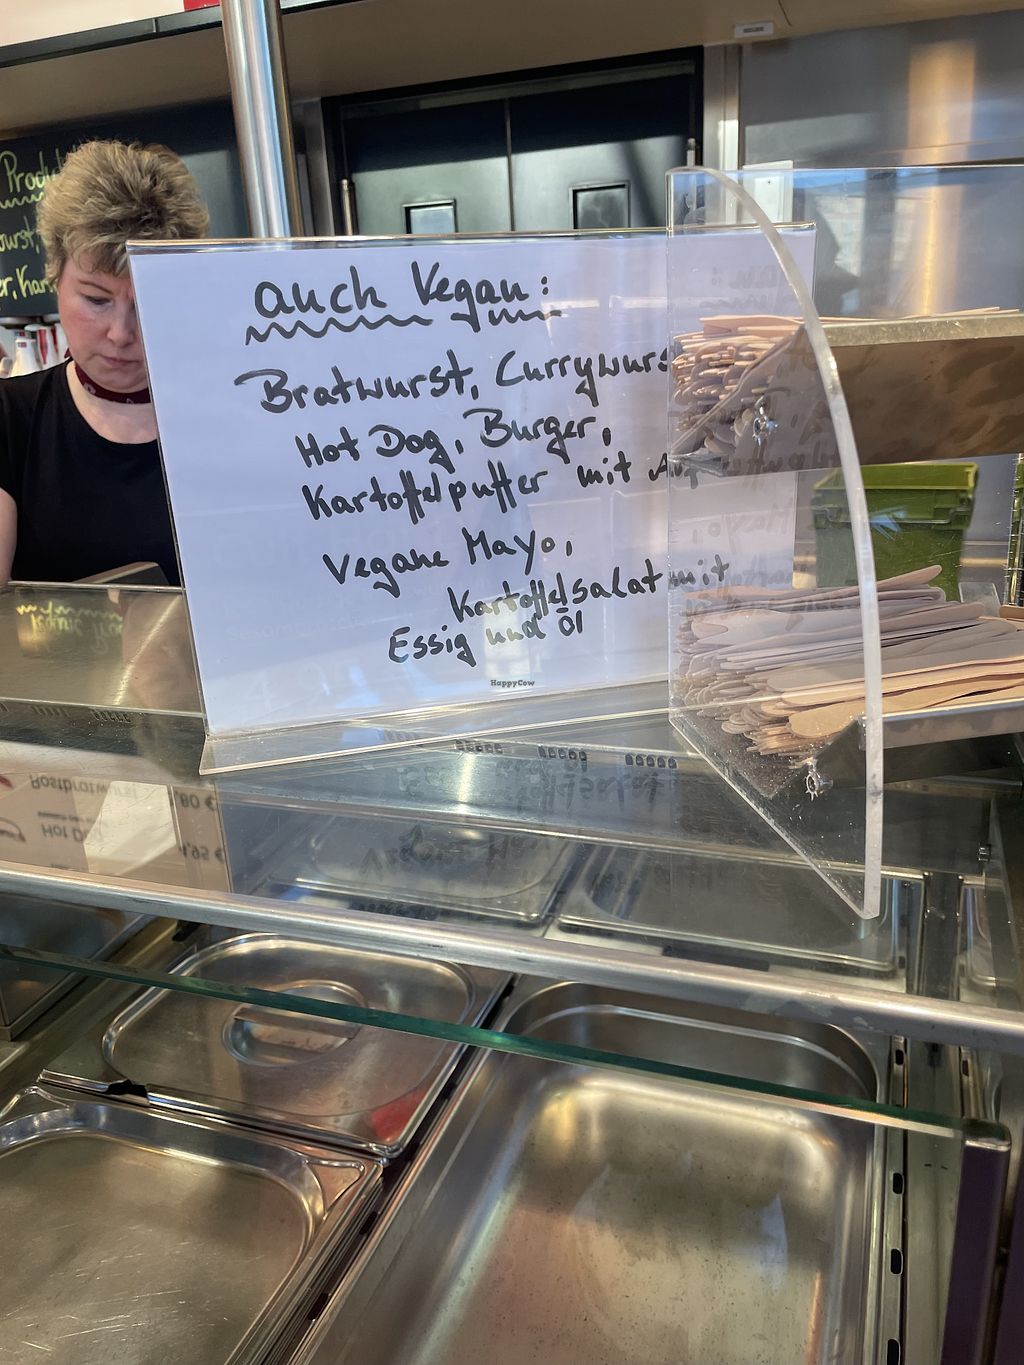 auch Vegan:
Bratwurst, Currywurst
Hot Dog, Burger,
Kartoffelpuffer mit
Vegane Mayo,
Kartoffelsalat mit
Essig und Öl
HappyCow
Rostbratwurst
Hot Dog